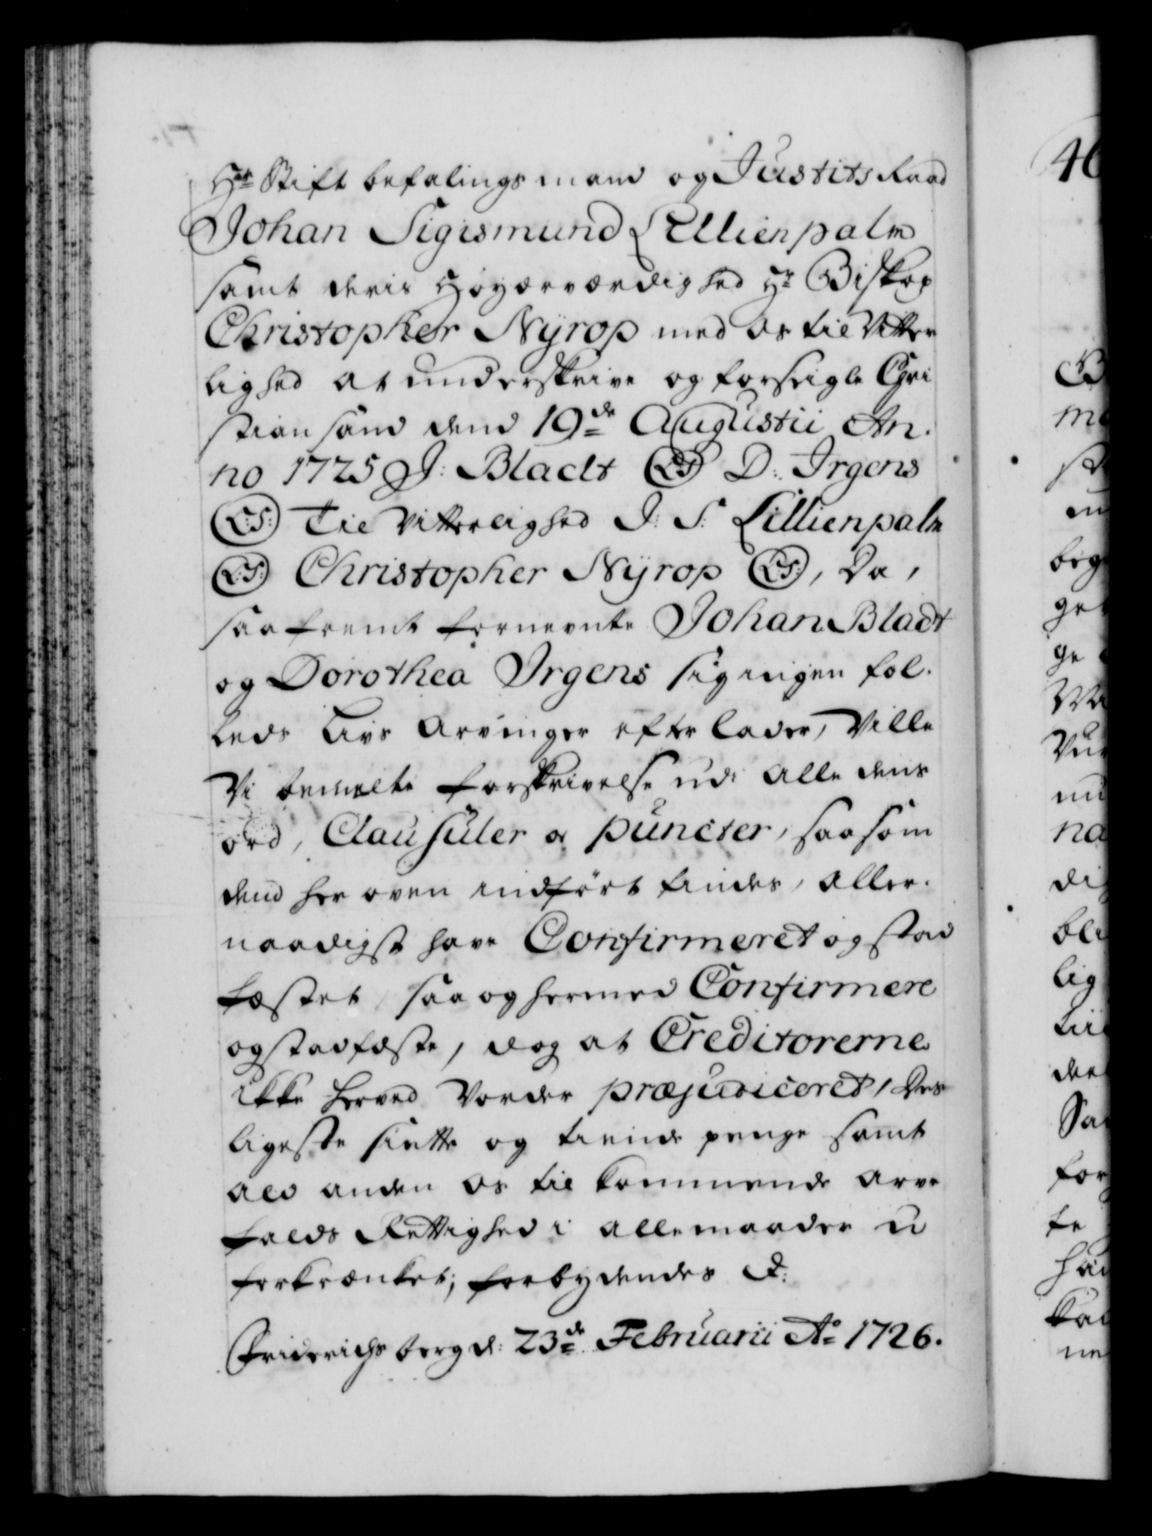 Hr: Stift befalings mand og Justits Raad
Johan Sigismund Lillienpalm
samt deris Høyærværdighed Hr: Biskop
Christopher Nyrop med os til Vitter
lighed at underskrive og forseigle Chri
stiansand dend 19de Augustii An.
no 1725 J: Bladt (L:S:) D: Irgens
(L:S:) Til Vitterlighed J: S: Lillienpalm
(L:S:) Christopher Nyrop (L:S:), Da,
saafremt fornevnte Johan Bladt
og Dorothea Irgens sig ingen föl.
Livs Arvinger efterlader, Ville
Vi bemelte forskrivelse udi alle dens
ord, Clausuler og puncter, saasom
dend her oven indført findes, aller.
naadigst have Confirmeret og stad
fæstet, saa og hermed Confirmere
og stadfæste, dog at Creditorerne
ikke herved vorder præjudiceret, Des
ligeste siette og tiende penge samt
ald anden os tilkommende arve
falds Rettighed i allemaader u
forkrænket; forbydendes &:
Friderichsberg d: 23de Februarii Ao 1726.
46